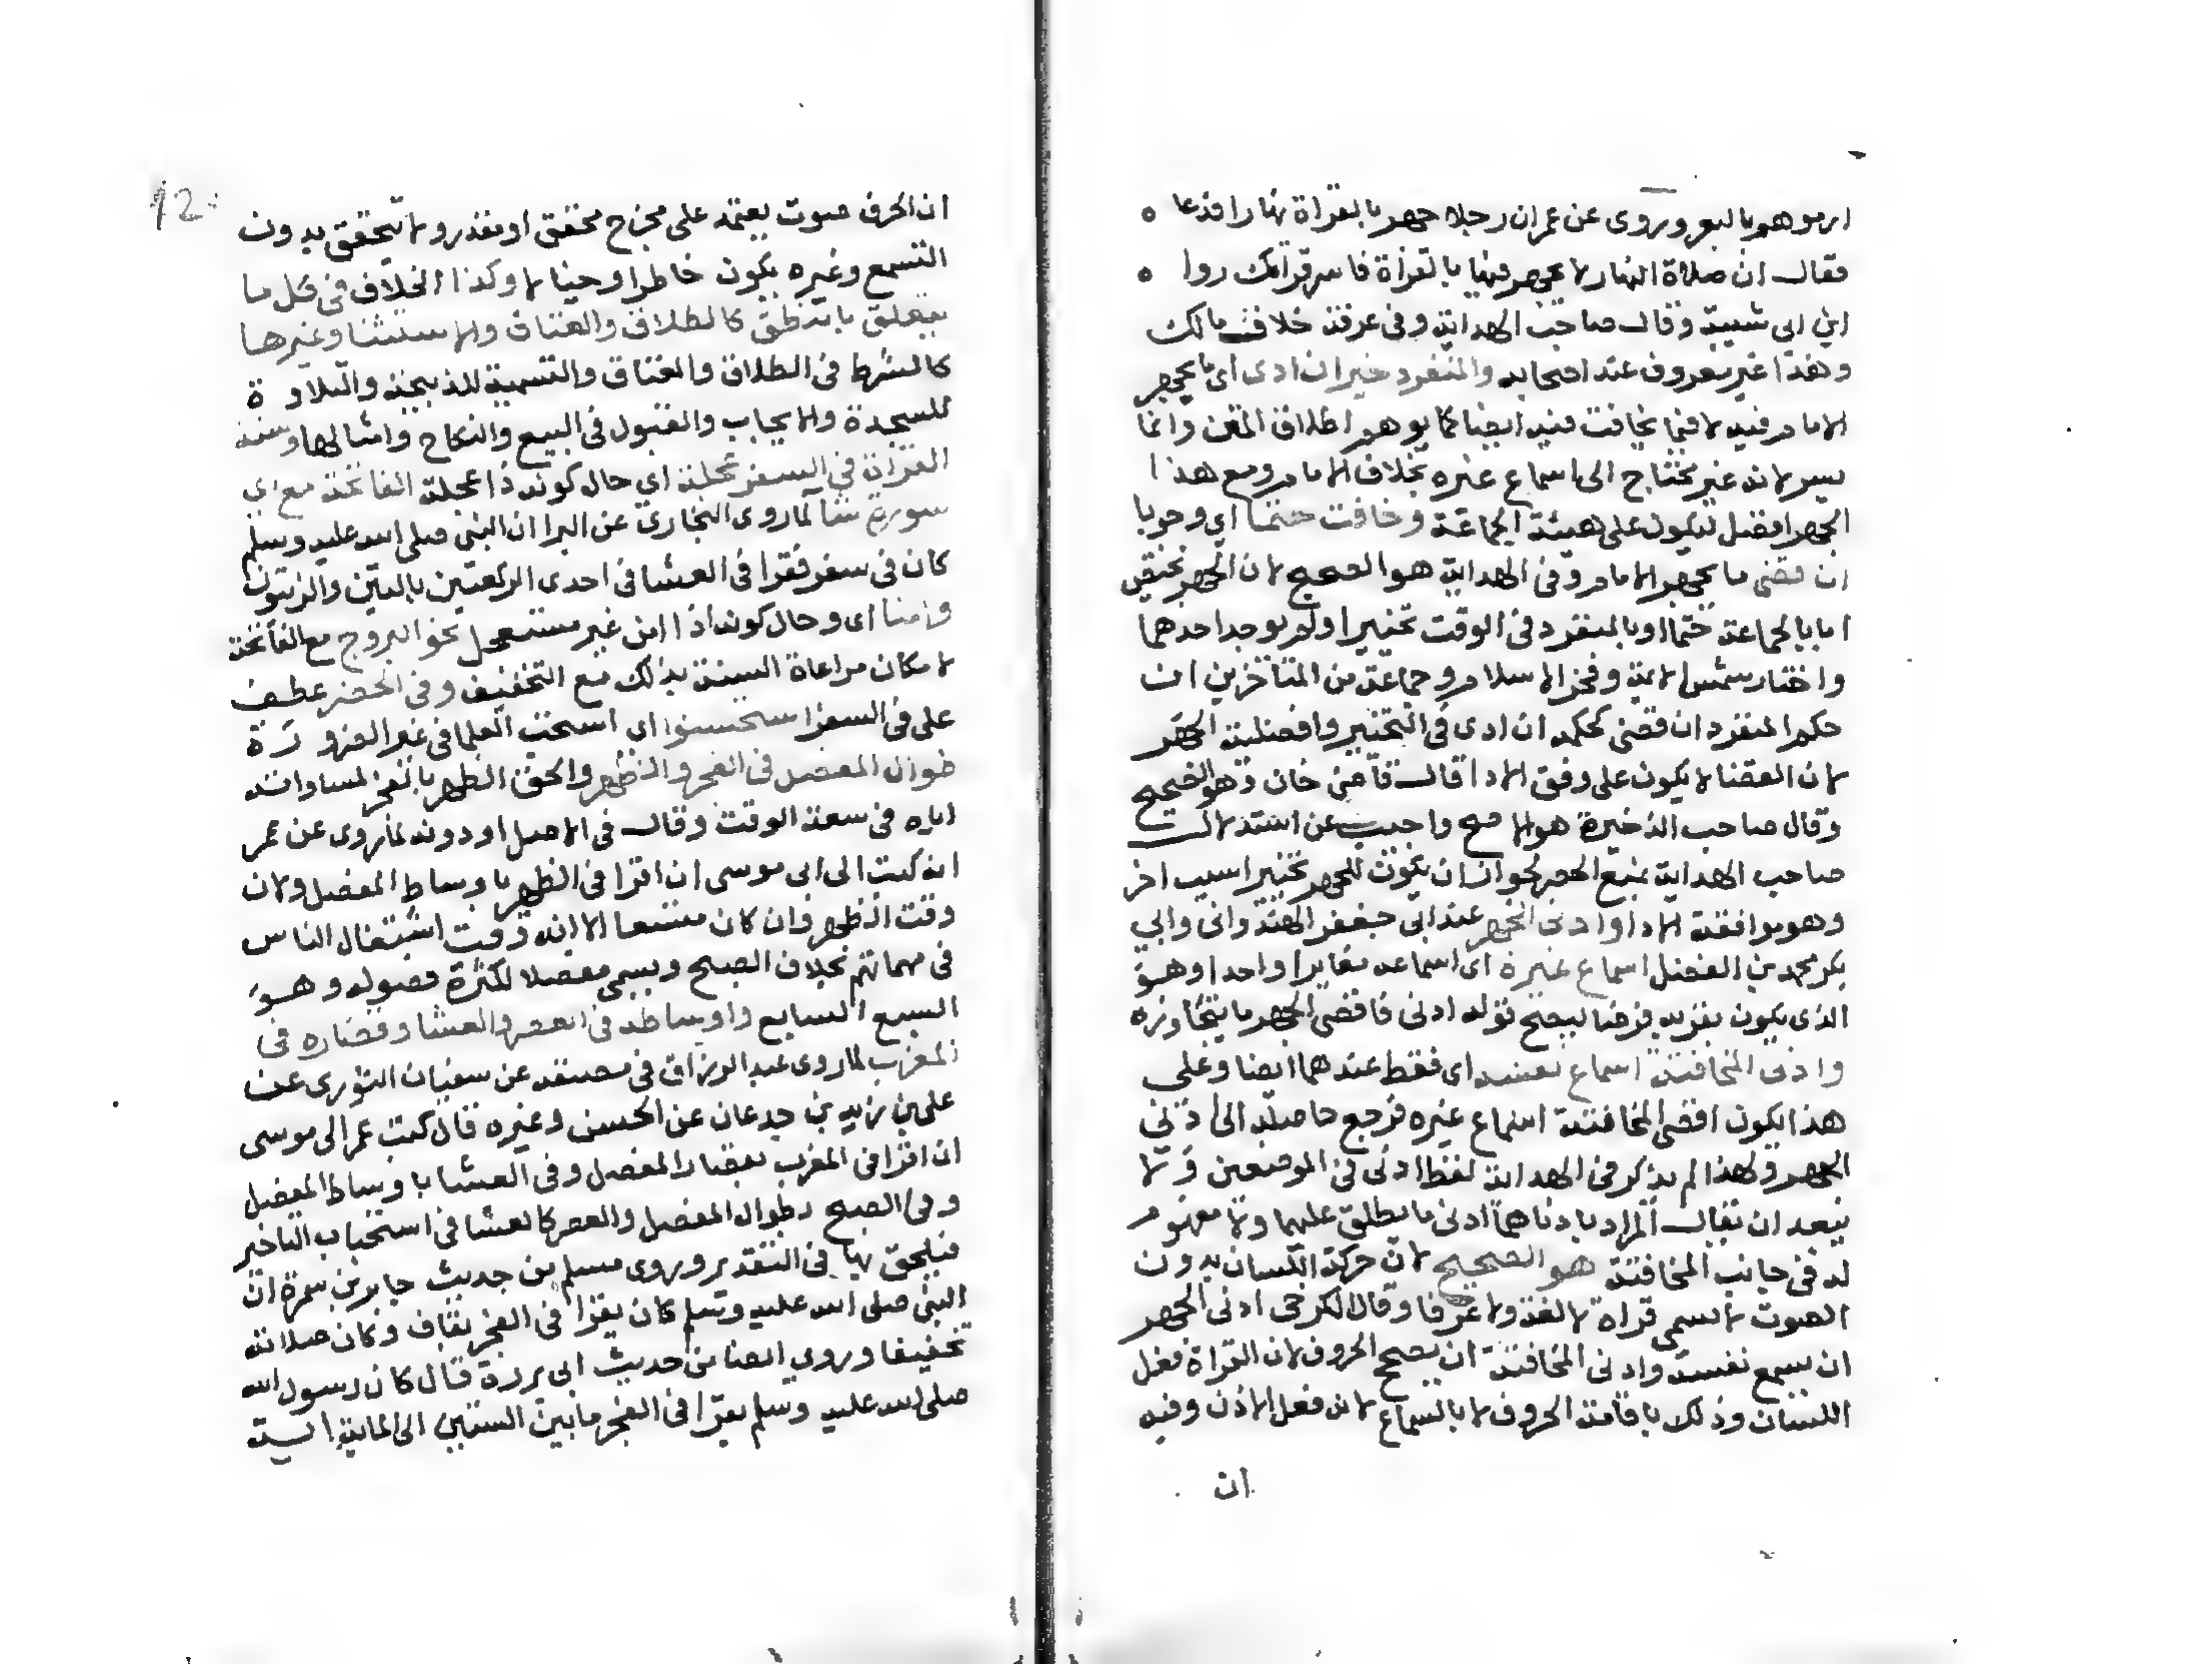 ارموهم بالبعر وروى عن عمران رجلا جهر بالقراة نهارا فدعا ه
فقال ان صلاة النهار لا يجهر فيها بالقراة فاسر قراتك رواه
ابن ابى شيبة وقال صاحب الهداية وفى عرفة خلاف مالك
وهذا غير معروف عند اصحابه والمنفرد خير ان ادى اى ما يجهر
الامام فيه لا فيما يخافت فيه ايضا كما يوهم اطلاق المتن وانما
يسر لانه غير محتاج الى اسماع غيره بخلاف الامام ومع هذا
الجهر افضل ليكون على هيئة الجماعة وخافت حتما اي وجوبا
ان قضى ما يجهر الامام وفى الهداية هو الصحيح لان الجهر مختص
اما بالجماعة حتما او بالمنفرد فى الوقت تخييرا ولم يوجد احدهما
واختار شمس الايمة وفخر الاسلام وجماعة من المتاخرين ان
حكم المنفرد ان قضى كحكمه ان ادى فى التخيير وافضلية الجهر
لان القضا لا يكون على وفق الادا قال قاضى خان وهو الصحيح
وقال صاحب الذخيرة هو الاصح واجيب عن استدلال
صاحب الهداية بمنع الحصر لجواز ان يكون للجهر تخييرا سبب اخر
وهو موافقة الادا وادنى الجهر عند ابى جعفر الهندوانى وابي
بكر محمد بن الفضل اسماع غيره اى اسماعه مقابرا واحدا وهو
الذى يكون بقربه فرضا ليصح قوله ادنى فاقصى الجهر ما يتجاوزه
وادنى المخافتة اسماع نفسه اى فقط عندهما ايضا وعلى
هذا يكون اقصى المخافتة اسماع غيره فرجع حاصله الى ادنى
الجهر ولهذا لم يذكر فى الهداية لفظ ادنى فى الموضعين ولا
يبعد ان يقال المراد بادناهما ادنى ما يطلق عليهما ولا مفهوم
له فى جانب المخافتة هو الصحيح لان حركة اللسان بدون
الصوت لا تسمى قراة لا لغة ولا عرفا وقال الكرخى ادنى الجهر
ان يسمع نفسه وادنى المخافتة ان يصحح الحروف لان القراة فعل
اللسان وذلك باقامة الحروف لا بالسماع لانه فعل الاذن وفيه
ان
12
ان الحرف صوت يعتمد على مخرج محقق او مقدر ولا يتحقق بدون
التسمع وغيره يكون خاطرا وخيالا وكذا الخلاف فى كل ما
يتعلق بالنطق كالطلاق والعتاق والاستثنا وغيرها
كالشرط فى الطلاق والعتاق والتسمية للذبيحة والتلاوة
للسجدة والايجاب والقبول فى البيع والنكاح وامثالها وسنة
القراة في السفر عجلة اي حال كونه ذا عجلة الفاتحة مع اي
سورة شا لما روى البخارى عن البرا ان النبى صلى الله عليه وسلم
كان فى سفر فقرا فى العشا فى احدى الركعتين بالتين والزيتون
وامنا اى وحال كونه اذا امن غير مستعجل نحو البروج مع الفاتحة
لامكان مراعاة السنة بذلك مع التخفيف وفى الحضر عطف
على فى السفر استحسنوا اى استحب العلما فى غير الضرورة
طوال المفصل فى الفجر والظهر والحق الظهر بالفجر لمساواته
اياه فى سعة الوقت وقال فى الاصل او دونه لما روى عن عمر
انه كتب الى ابى موسى ان اقرا فى الظهر باوساط المفصل ولان
وقت الظهر وان كان متسعا الا انه وقت اشتغال الناس
فى مهماتهم بخلاف الصبح ويسمى مفصلا لكثرة فصوله وهو
السبع السابع واوساطه فى العصر والعشا وقصاره فى
المغرب لما روى عبد الرزاق فى مصنفه عن سفيان الثورى عن
على بن زيد بن جدعان عن الحسن وغيره قال كتب عمر الى موسى
ان اقرا فى المغرب بقصار المفصل وفى العشا باوساط المفصل
وفى الصبح بطوال المفصل والعصر كالعشا فى استحباب التاخير
فيلحق بها فى التقدير وروى مسلم من حديث جابر بن سمرة ان
النبى صلى الله عليه وسلم كان يقرا فى الفجر بقاف وكان صلاته
تخفيفا وروى ايضا من حديث ابى بردة قال كان رسول الله
صلى الله عليه وسلم يقرا فى الفجر ما بين الستين الى الماية اية